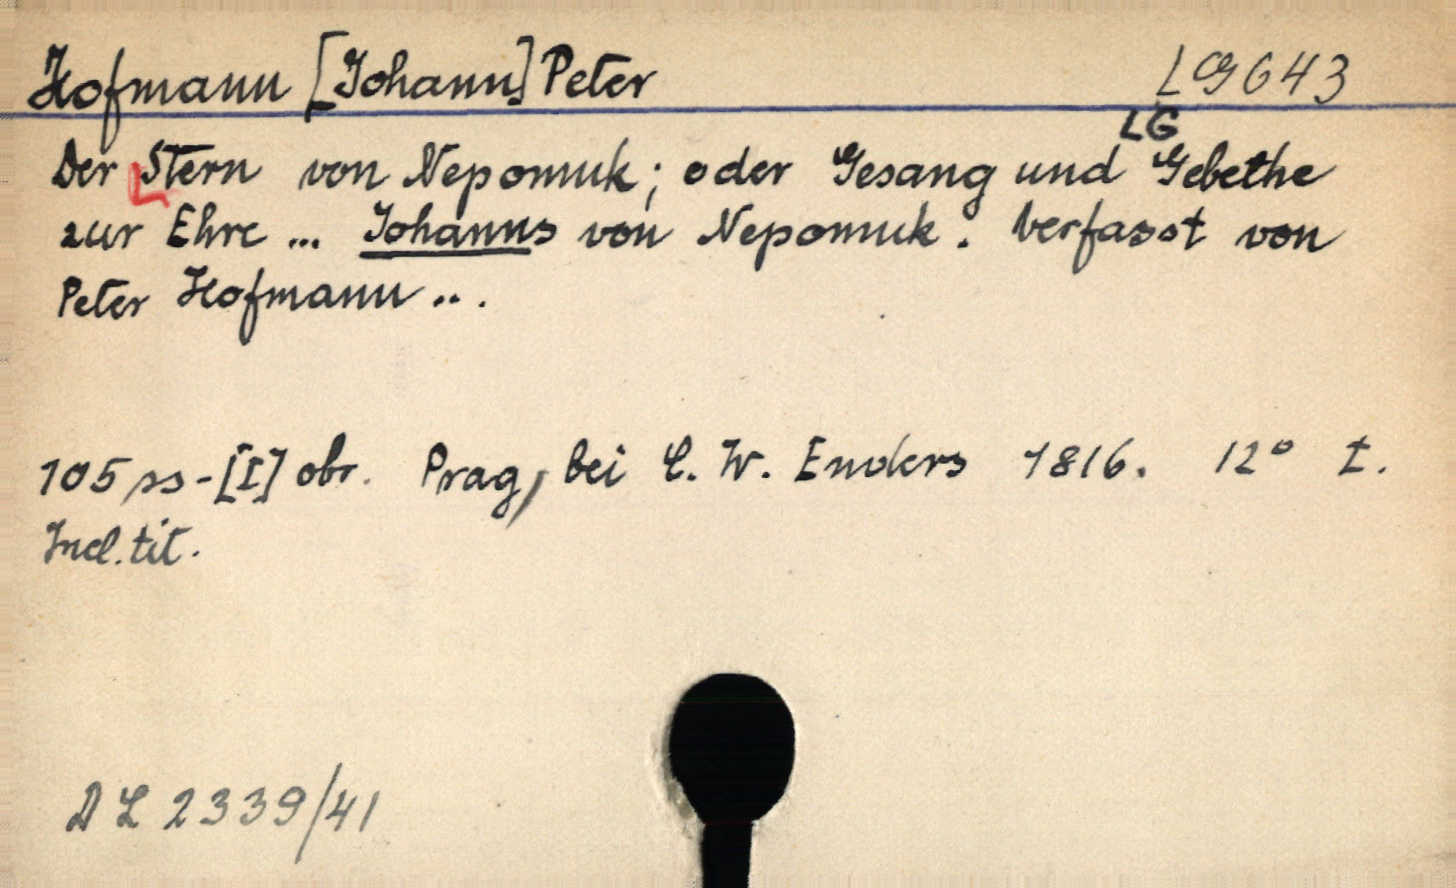 Hofmann [Johann] Peter LG 643
LG
Der Stern von Nepomuk; oder Gesang und Gebethe
zur Ehre ... Johanns von Nepomuk. Verfasst von
Peter Hofmann ...
105 ss - [I] obr. Prag, bei C. W. Enders 1816. 12° t.
Incl. tit.
DL 2339/41